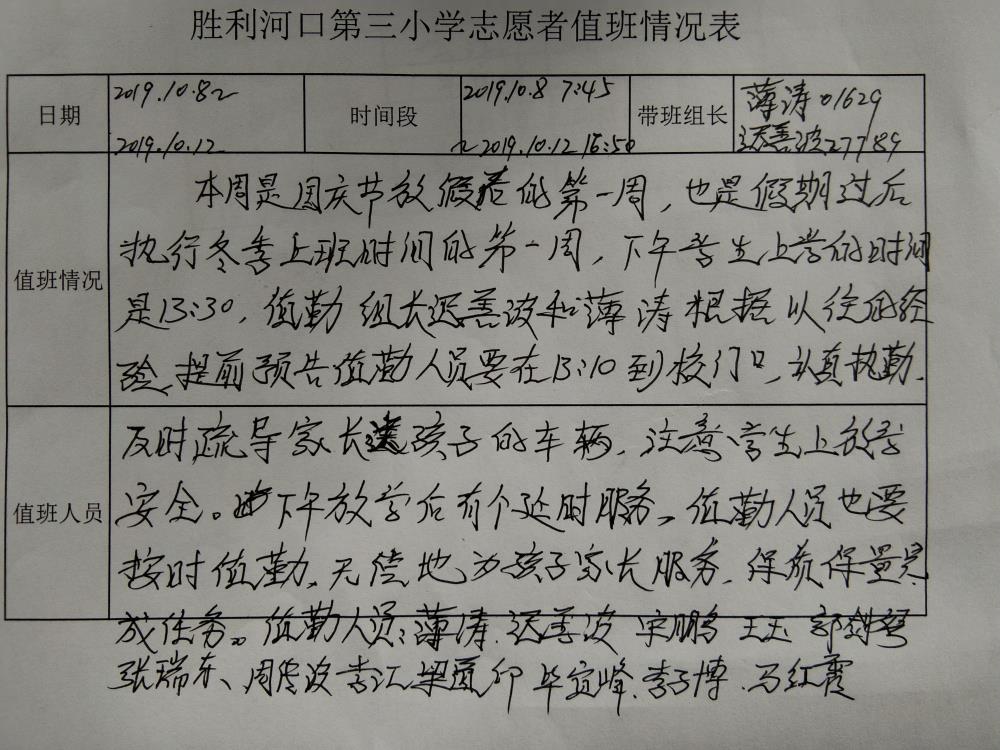 胜利河口第三小学志愿者值班情况表
日期
2019.10.8~
2019.10.12
时间段
2019.10.8 7:45
~2019.10.12 16:50
带班组长
薄涛01629
迟善波27789
值班情况
本周是国庆节放假后的第一周，也是假期过后
执行冬季上班时间的第一周，下午学生上学的时间
是13:30，值勤组长迟善波和薄涛根据以往的经
验，提前预告值勤人员要在13:10到校门口，认真执勤.
值班人员
反时疏导家长送孩子的车辆，注意学生上放学
安全。下午放学后有个延时服务，值勤人员也要
按时值勤，无偿地为孩子家长服务，保质保量完
成任务。值勤人员：薄涛.迟善波 宋鹏 王玉 郭
张瑞东、周 波 李江 梁 毕宜峰.李子博.马红霞